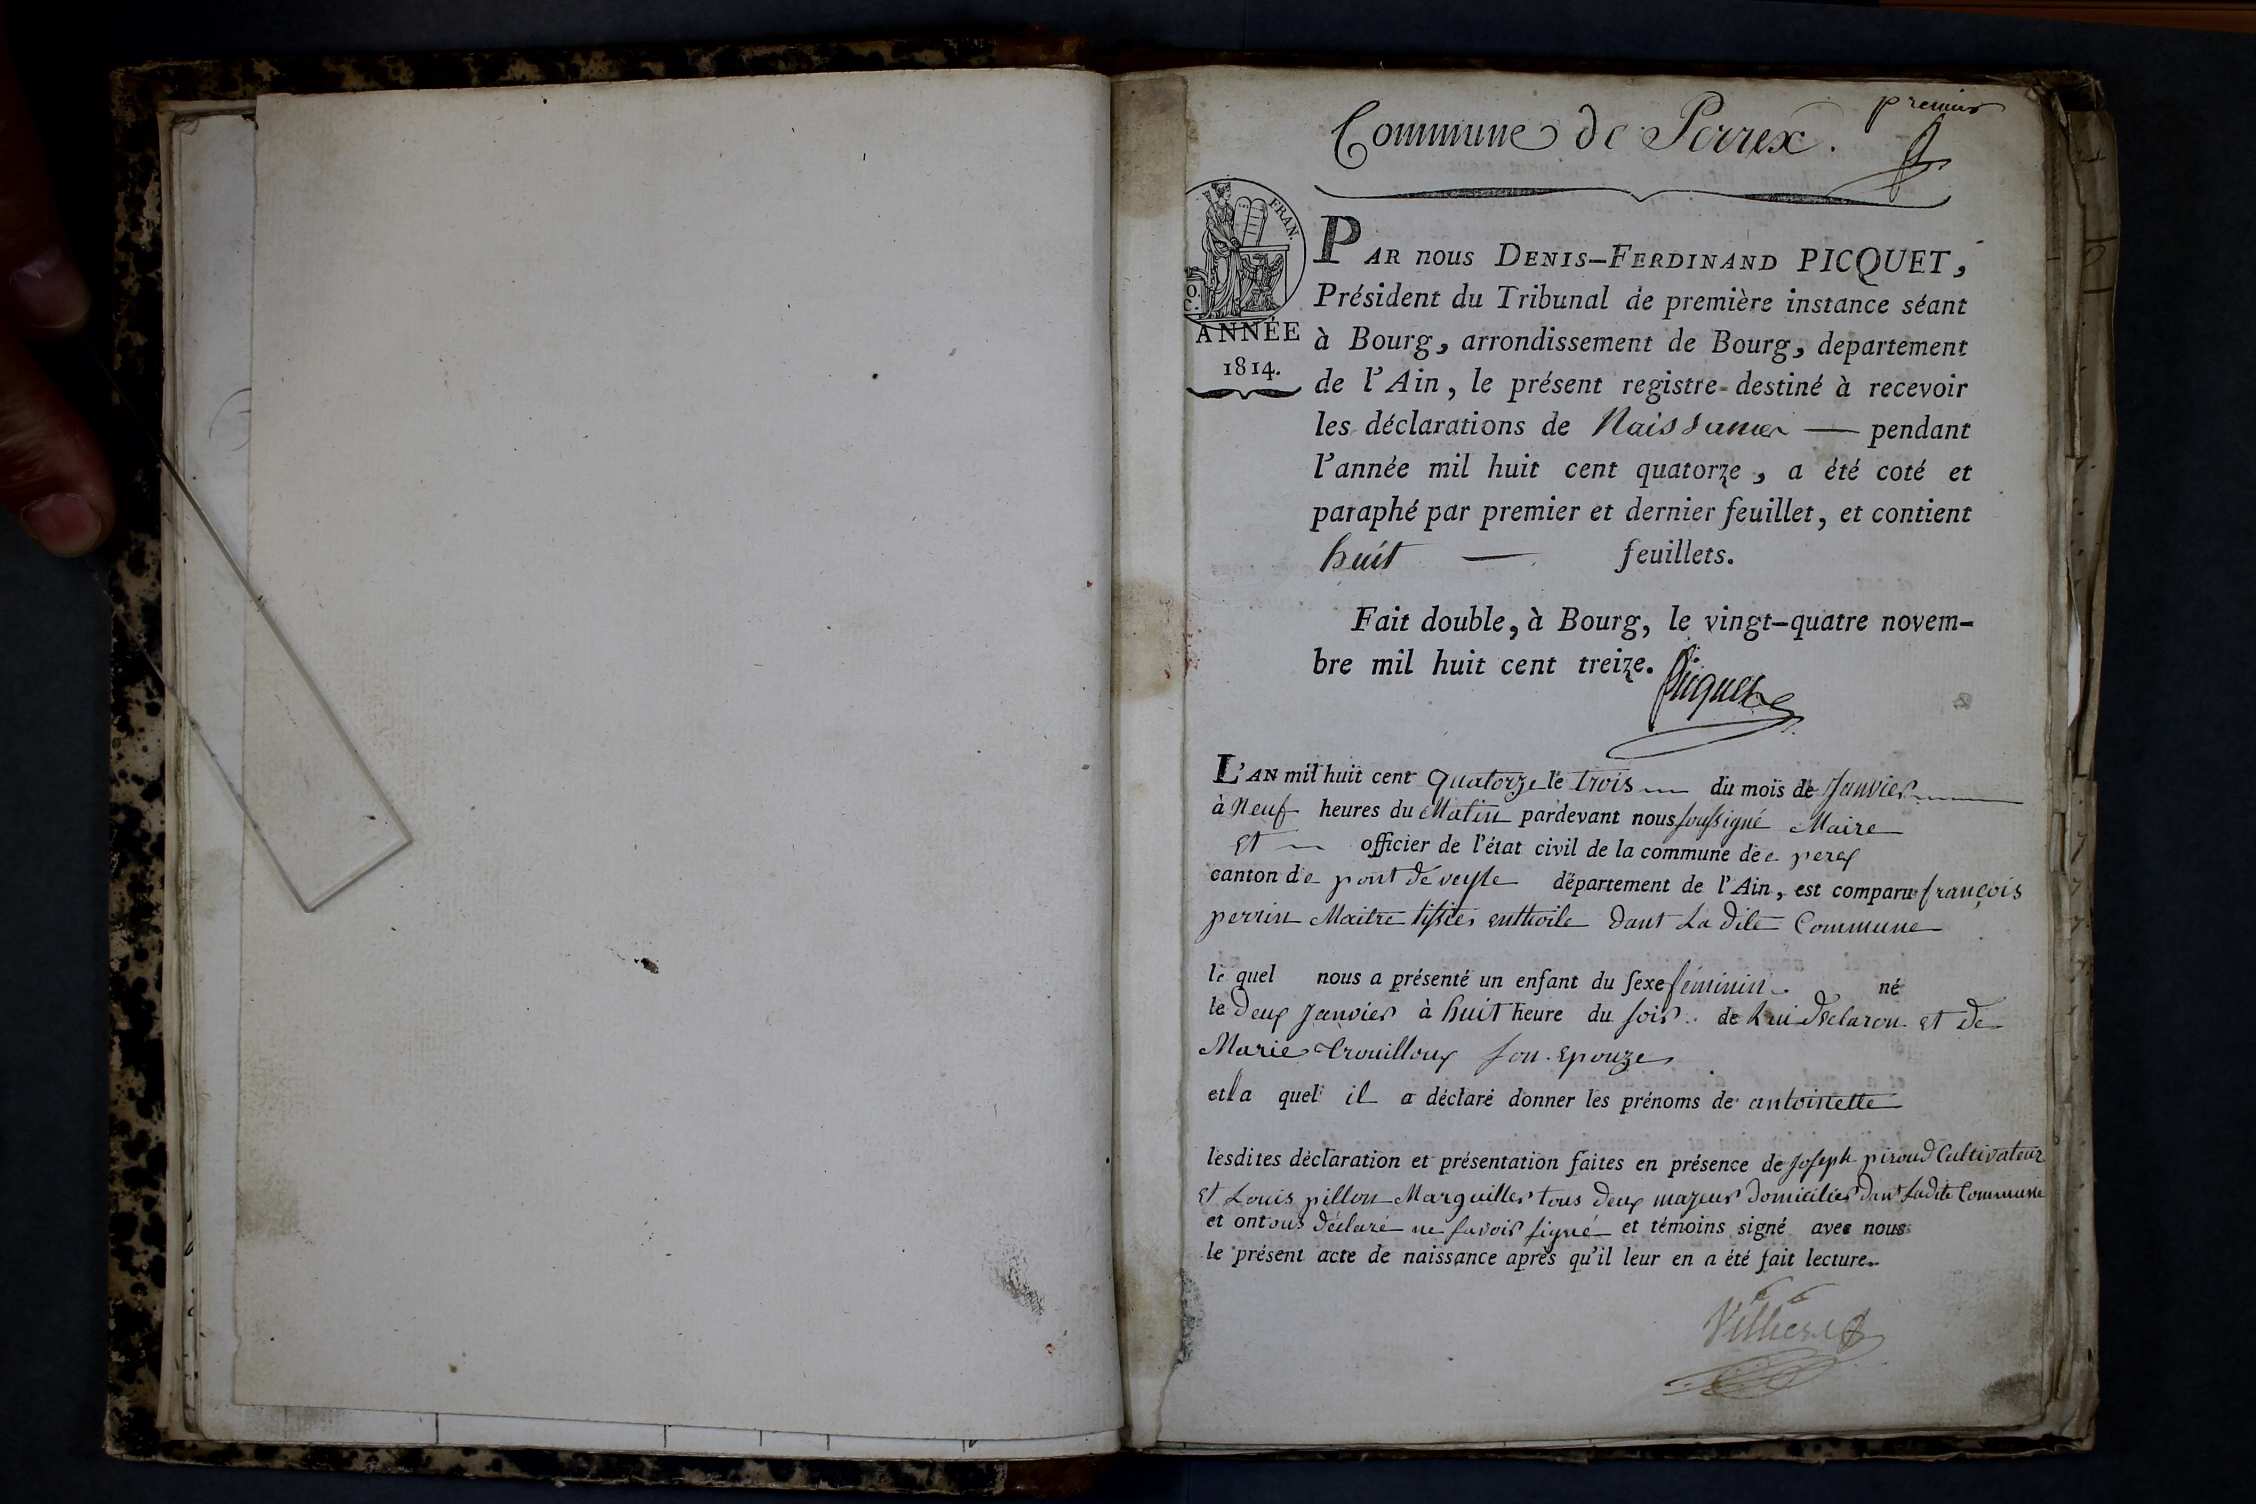 premier
Commune de Perrex.
FRAN.
ANNÉE
1814.
PAR nous DENIS-FERDINAND PICQUET,
Président du Tribunal de première instance séant
à Bourg, arrondissement de Bourg, departement
de l'Ain, le présent registre destiné à recevoir
les déclarations de Naissances — pendant
l'année mil huit cent quatorze, a été coté et
paraphé par premier et dernier feuillet, et contient
huit — feuillets.
Fait double, à Bourg, le vingt-quatre novem-
bre mil huit cent treize. Picquet
L'AN mil huit cent quatorze le trois du mois de Janvier
à Neuf heures du Matin pardevant nous soussigné Maire
et officier de l'état civil de la commune de perex
canton de pont de veyle département de l'Ain, est comparu françois
perrin Maitre tissier entoile dant La dite Commune
le quel nous a présenté un enfant du sexe féminin né
le Deux Janvier à huit heure du soir de Lui Declaron et de
Marie Trouilloux son Epouze
et la quel il a déclaré donner les prénoms de antoinette
lesdites déclaration et présentation faites en présence de Joseph piroud Cultivateur
et Louis pillon Marguiller tous deux majeur domicilier dant Ladite Commune
et ont ous déclaré ne savoir signé et témoins signé avec nous
le présent acte de naissance après qu'il leur en a été fait lecture.